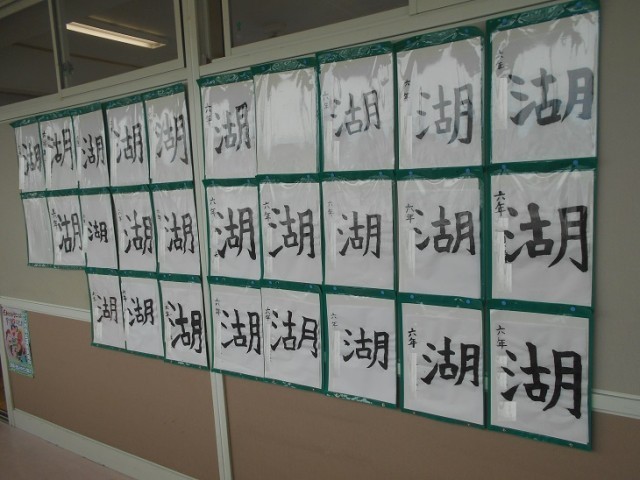 湖
湖
湖
湖
湖
湖
湖
湖
湖
湖
湖
湖
六年
湖
湖
六年
湖
六年
湖
六年
湖
湖
湖
六年
湖
六年
湖
湖
湖
六年
湖
六年
湖
六年
湖